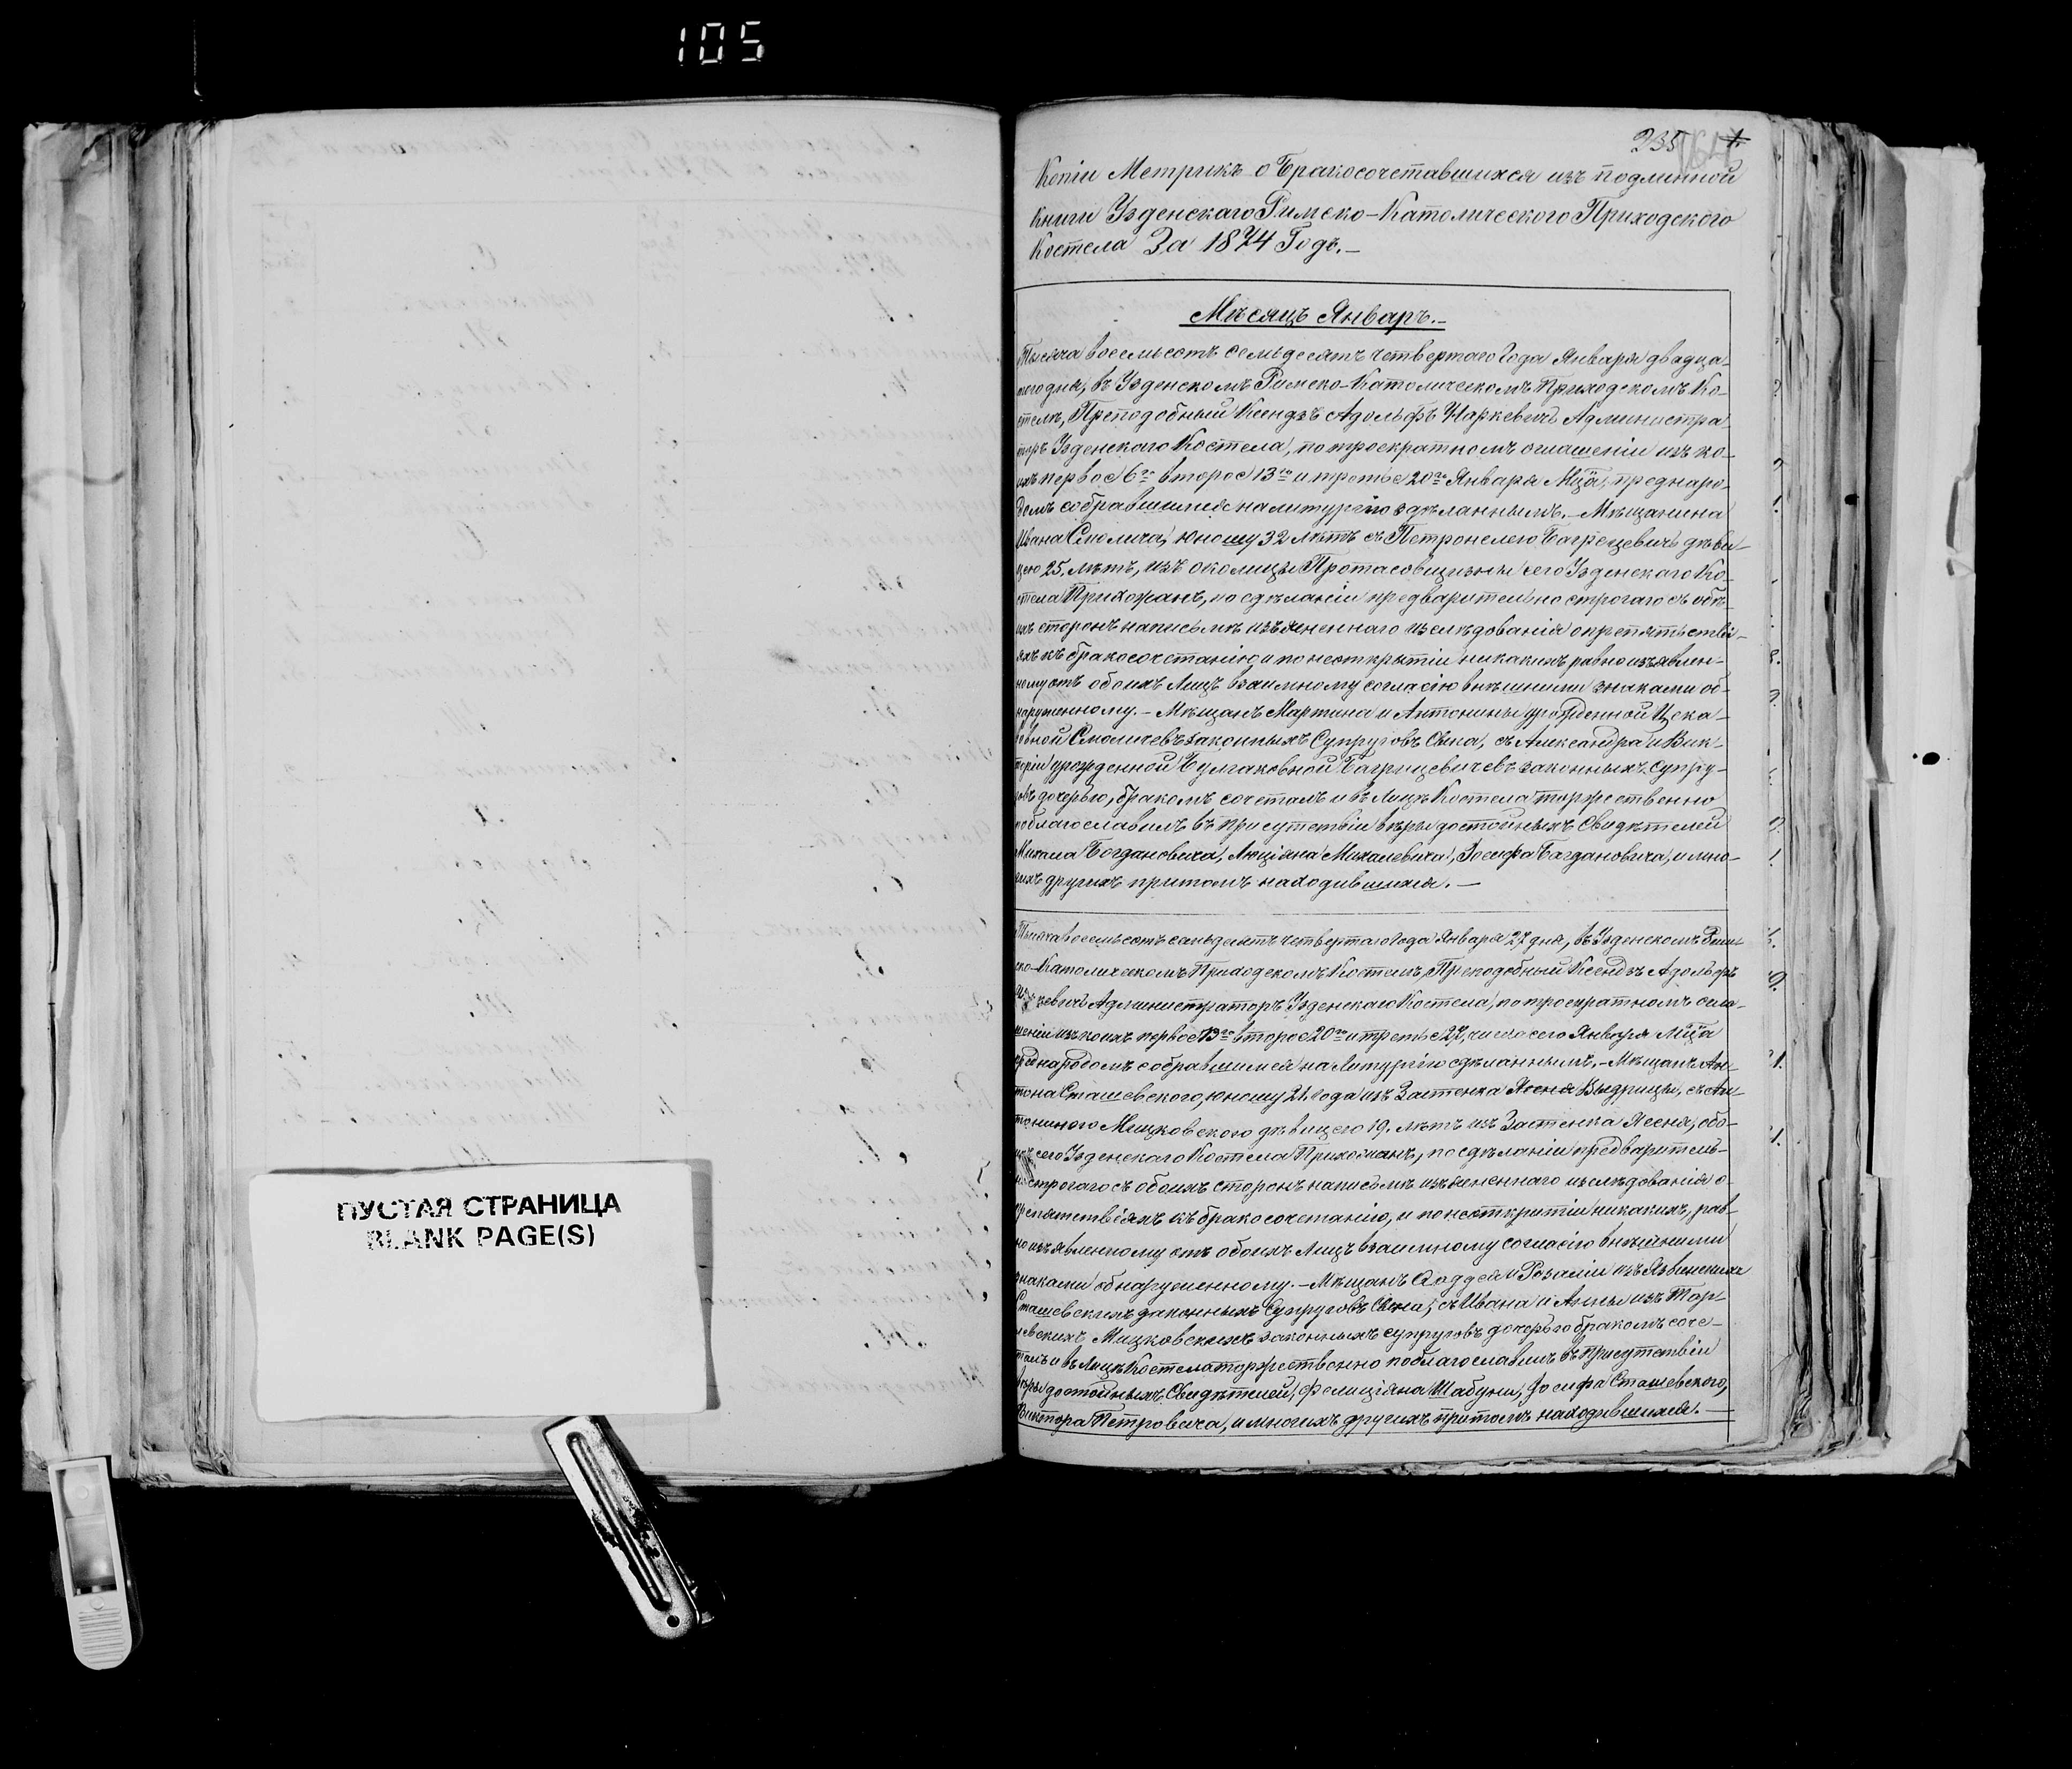 105
235
Копіи Метрикъ о Бракосочетавшихся изъ подлинной
книги Узденскаго Римско-Католическаго Приходского
Костела За 1874 Годъ.-
Мѣсяцъ Январъ.-
Тысяча восемьсотъ семьдесятъ четвертаго Года Января двадца-
таго дня, въ Узденскомъ Римско-Католическомъ Приходскомъ Ко-
стелѣ, Преподобный Ксендзъ Адольфъ Администра
торъ Узденскаго Костела, по троекратномъ оглашеніи изъ ко-
ихъ первое 6го второе 13го и третье 20го Января Мца, предъ наро-
домъ собравшимся на литургію здѣланнымъ.- Мѣщанина
Ивана Смолича, юношу 32 лѣтъ съ Петронелею Багрецевичъ дѣви-
цею 25. лѣтъ, изъ околицы Протасовщизны сего Узденскаго Ко-
стела Прихожанъ, по сдѣланіи предварительно строгаго съ обѣ-
ихъ сторонъ на письмѣ изъясненнаго изслѣдованія о препятстві-
яхъ къ бракосочетанію и по неоткрытіи никакихъ равно изъявлен-
ному отъ обоихъ Лицъ взаимному согласію внѣшними знаками об-
наруженному.- Мѣщанъ Мартина и Антонины урожденной Цека-
ловной Смоличевъ законныхъ Супруговъ Сына, съ Александра и Вик-
торіи урожденной Булгаковной Багрицевичевъ законныхъ супру-
говъ дочерью, бракомъ сочеталъ и въ Лицѣ Костела торжественно
поблагославилъ въ присутствіи вѣры достойныхъ Свидѣтелей
Михала Богдановича, Люціяна Михалевича, Іосифа Багдановича, и мно-
гихъ другихъ притомъ находившихся.-
Тысяча восемьсотъ семьдесятъ четвертаго Года Января 27 дня, въ Узденскомъ Рим-
ско-Католическомъ Приходскомъ Костелѣ, Преподобный Ксендзъ Адольфъ
Администраторъ Узденскаго Костела, по троекратномъ огла-
шеніи изъ коихъ первое 13го второе 20го и третье 27, числа сего Января Мца
предъ народомъ собравшимся на Литургію сдѣланнымъ.- Мѣщанъ Ан-
тона Сташевского, юношу 21. года изъ Застенка Ясеня Выдрицы, съ Ан-
тониною Мицковского дѣвицею 19. лѣтъ изъ Застенка Ясеня, обо-
ихъ сего Узденскаго Костела Прихожанъ, по сдѣланіи предваритель-
но строгаго съ обоихъ сторонъ на письмѣ изъясненнаго изслѣдованія о
препятствіяхъ къ бракосочетанію, и по неоткрытіи никакихъ, рав-
но изъявленному отъ обоихъ Лицъ взаимному согласію внѣшними
знаками обнаруженному.- Мѣщанъ Фаддея и Розаліи изъ Язвинскихъ
Сташевскихъ законныхъ Супруговъ Сына, съ Ивана и Анны изъ
Мицковскихъ законныхъ супруговъ дочерью бракомъ соче-
талъ и въ Лицѣ Костела торжественно поблагославилъ въ присутствіи
вѣры достойныхъ Свидѣтелей, Фелиціяна Шабуни, Іосифа Сташевского,
Виктора Петровича, и многихъ другихъ притомъ находившихся.-
ПУСТАЯ СТРАНИЦА
BLANK PAGE(S)